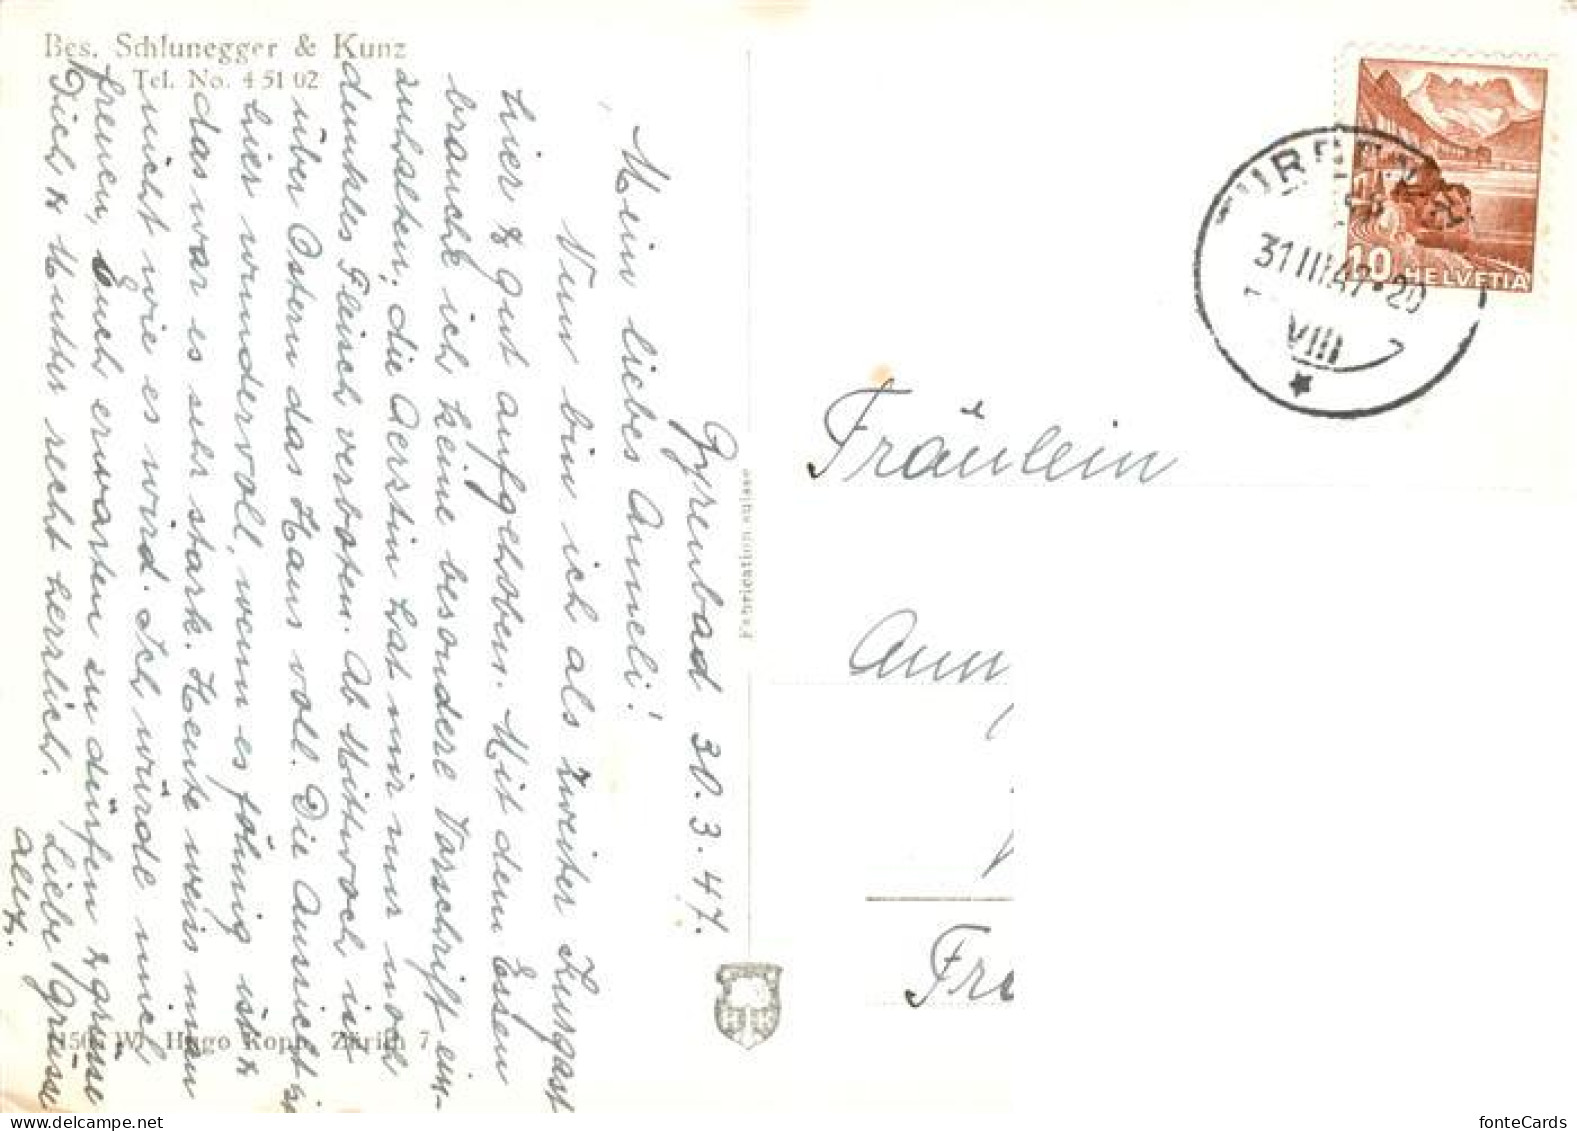 Bes. Schlunegger & Kunz
Tel. No. 4 51 02
Gyrenbad 30. 3. 47.
Mein liebes Anneli!
Nun bin ich als zweiter Kurgast
hier & gut aufgehoben. Mit dem Essen
brauche ich keine besondere Vorschrift ein-
zuhalten, die Aerztin hat mir nur noch
dunkles Fleisch verboten. Ab Mittwoch ist
über Ostern das Haus voll. Die Aussicht ist
hier wundervoll, wenn es föhnig ist &
das war es sehr stark. Heute weiss man
nicht wie es wird. Ich würde mich
freuen, Euch erwarten zu dürfen & grüsse
Dich & Mutter recht herzlich. Liebe Grüsse
Fabrication suisse
Wl. Hugo Kopp, Zürich 7
Fräulein
Ann
Fr
31 III 47 · 20
VIII
10 HELVETIA
fonteCards